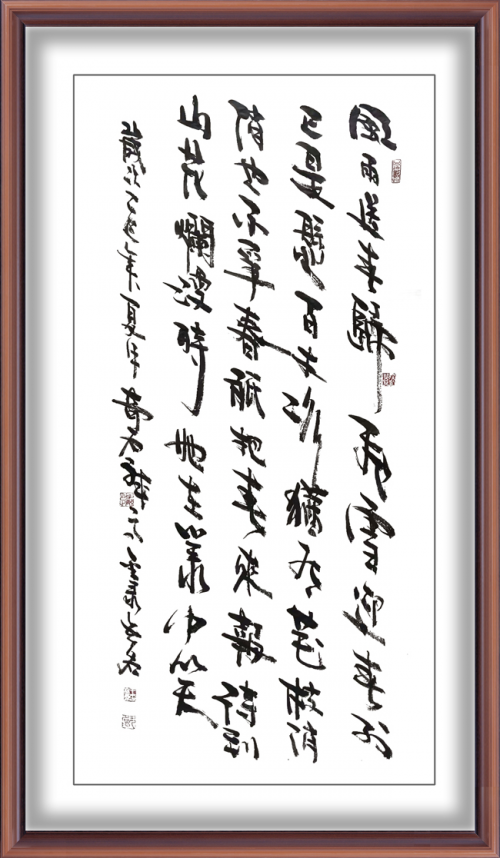 風雨送春歸飛雪迎春到
已是懸崖百丈冰猶有花枝俏
俏也不爭春祇把春來報待到
山花爛漫時她在叢中笑
歲次乙巳年夏月